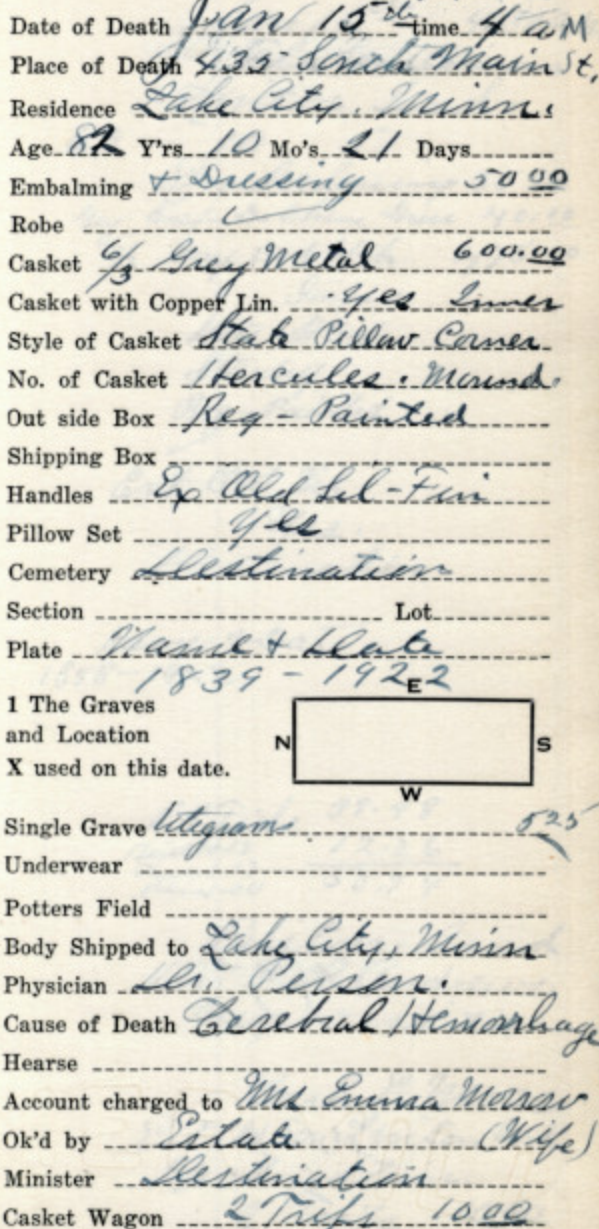 Date of Death Jan 15th time 4 a M
Place of Death 435 South Main St.
Residence Lake City, Minn.
Age 82 Y'rs 10 Mo's 21 Days
Embalming + Dressing 50 00
Robe
Casket 6/3 Grey Metal 600.00
Casket with Copper Lin. Yes Inner
Style of Casket State Pillow Corner
No. of Casket Hercules. Mound.
Out side Box Reg - Painted
Shipping Box
Handles Ex Old Sil-Fin
Pillow Set Yes
Cemetery Destination
Section Lot
Plate Name + Date
1839 - 1922
E
1 The Graves
and Location
X used on this date.
N S
W
Single Grave telegrams 525
Underwear
Potters Field
Body Shipped to Lake City, Minn
Physician Dr. Person.
Cause of Death Cerebral Hemorrhage
Hearse
Account charged to Mrs Emma Morrow
Ok'd by Estate (Wife)
Minister Destination
Casket Wagon 2 Trips 10 00